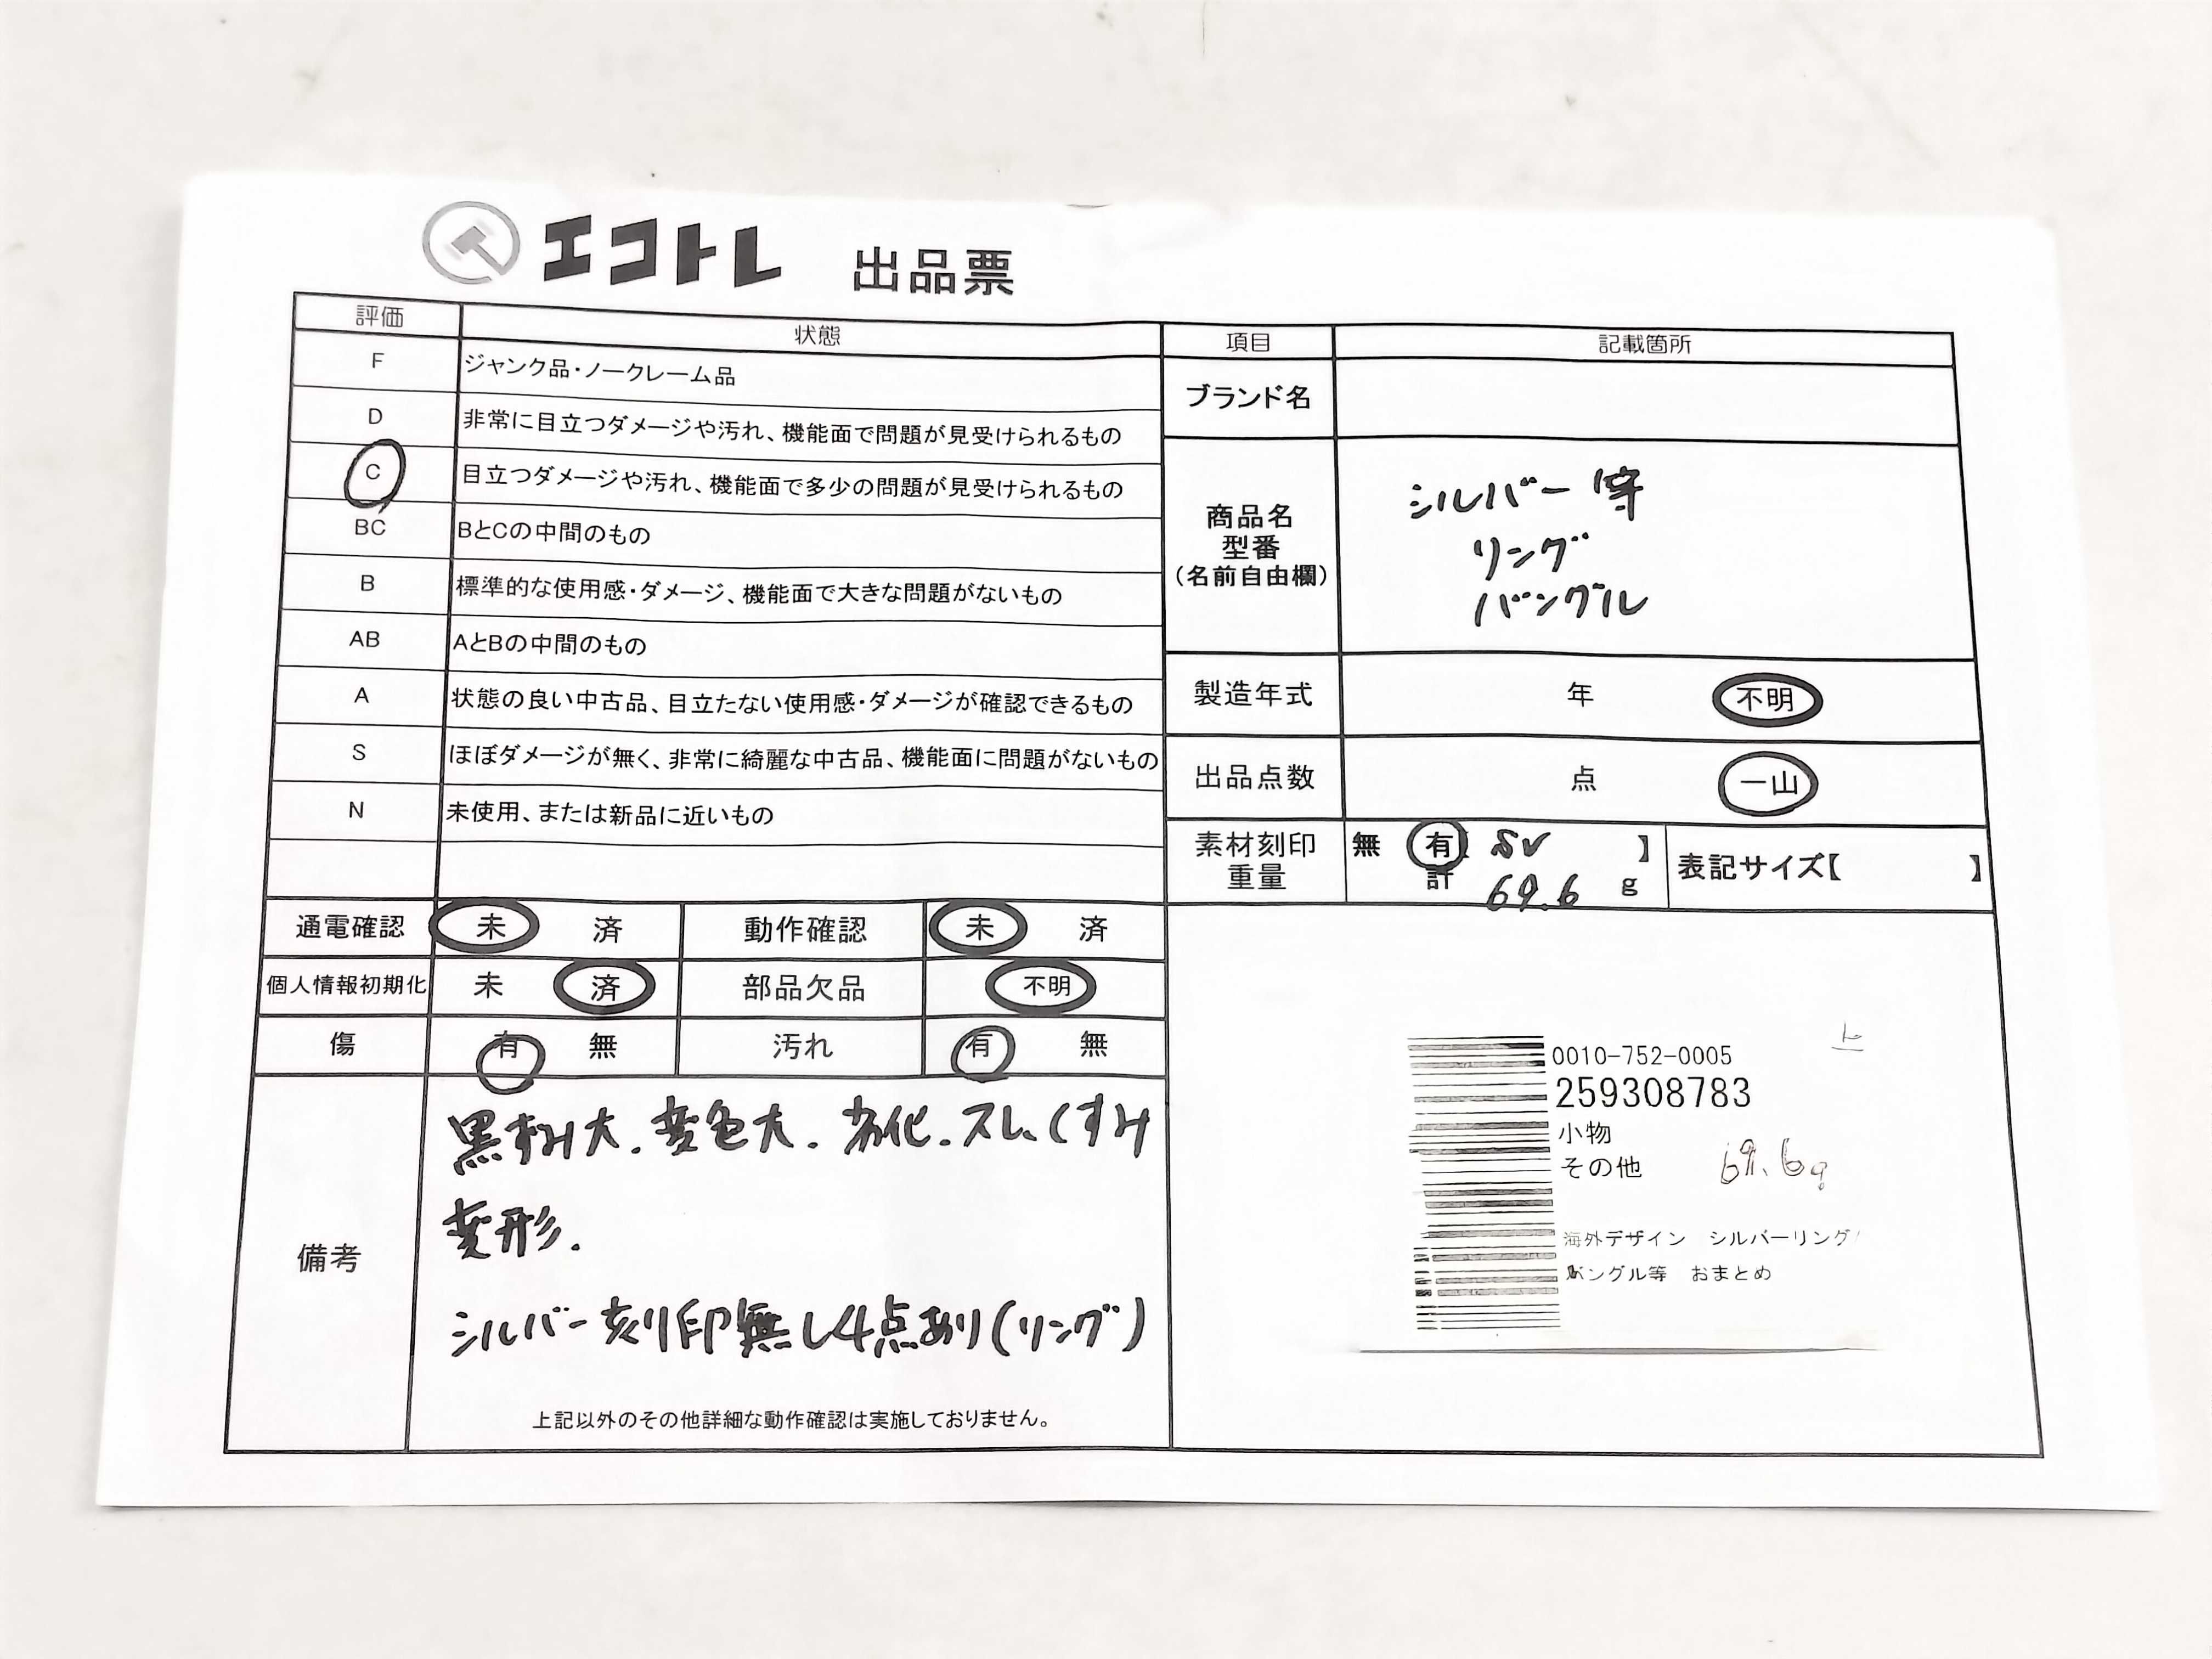 エコトレ 出品票
評価 状態
F ジャンク品・ノークレーム品
D 非常に目立つダメージや汚れ、機能面で問題が見受けられるもの
C 目立つダメージや汚れ、機能面で多少の問題が見受けられるもの
BC BとCの中間のもの
B 標準的な使用感・ダメージ、機能面で大きな問題がないもの
AB AとBの中間のもの
A 状態の良い中古品、目立たない使用感・ダメージが確認できるもの
S ほぼダメージが無く、非常に綺麗な中古品、機能面に問題がないもの
N 未使用、または新品に近いもの
通電確認 未 済 動作確認 未 済
個人情報初期化 未 済 部品欠品 不明
傷 有 無 汚れ 有 無
備考
黒ずみ大.変色大.劣化.スレ、くすみ
変形.
シルバー刻印無し4点あり(リング)
上記以外のその他詳細な動作確認は実施しておりません。
項目 記載箇所
ブランド名
商品名
型番
(名前自由欄)
シルバー等
リング
バングル
製造年式 年 不明
出品点数 点 一山
素材刻印 無 有 SV 】
重量 計 69.6 g
表記サイズ【 】
0010-752-0005
259308783
小物
その他 69.6g
海外デザイン シルバーリング/
バングル等 おまとめ